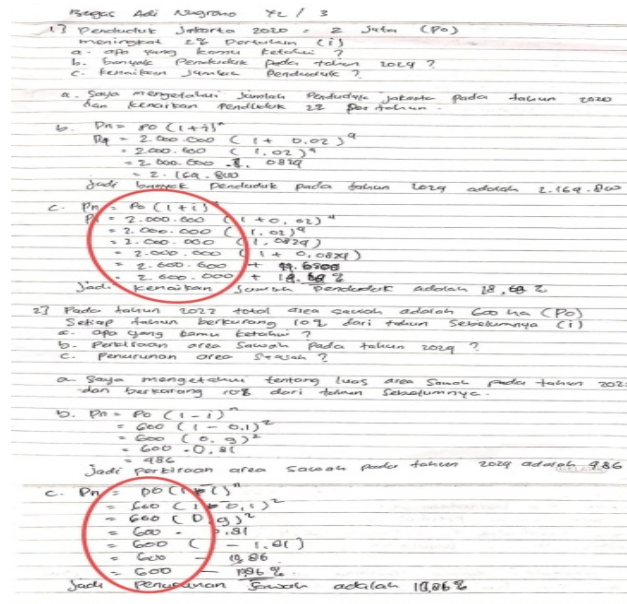 Bagas Adi Nugrono XL / 3
1] Penduduk Jakarta 2020 = 2 Juta (Po)
meningkat 2% Pertahun (i)
a. apa yang kamu ketahui ?
b. banyak Penduduk Pada tahun 2024 ?
c. kenaikan Jumlah Penduduk ?
a. Saya mengetahui Jumlah Penduduk Jakarta Pada tahun 2020
dan kenaikan Penduduk 2% Per tahun.
b. Pn = Po (1+i)ⁿ
P4 = 2.000.000 ( 1 + 0.02 )⁴
= 2.000.000 ( 1,02 )⁴
= 2.000.000 . 1, 0824
= 2.164.800
Jadi banyak Penduduk pada tahun 2024 adalah 2.164.800
c. Pn = Po (1+i)ⁿ
P = 2.000.000 (1 + 0,02)⁴
= 2.000.000 (1,02)⁴
= 2.000.000 (1,0824)
= 2.000.000 (1 + 0,0824)
= 2.000.000 +
= 2.000.000 + %
Jadi kenaikan Jumlah Penduduk adalah 18, %
2] Pada tahun 2022 total area sawah adalah 600 ha (Po)
Setiap tahun berkurang 10% dari tahun Sebelumnya (i)
a. apa yang kamu ketahui ?
b. Perkiraan area Sawah Pada tahun 2024 ?
c. Penurunan area Sawah ?
a. Saya mengetahui tentang luas area Sawah pada tahun 202
dan berkurang 10% dari tahun Sebelumnya.
b. Pn = Po (1 - i)ⁿ
= 600 (1 - 0.1)²
= 600 (0.9)²
= 600 . 0,81
= 486
Jadi Perkiraan area sawah pada tahun 2024 adalah 486
c. Pn = Po (1 i)ⁿ
= 600 (1 0,1)²
= 600 ( 0,9)²
= 600 . 0.81
= 600 ( - 1.81)
= 600 - 18,86
= 600 - %
Jadi Penurunan Sawah adalah 18,86 %